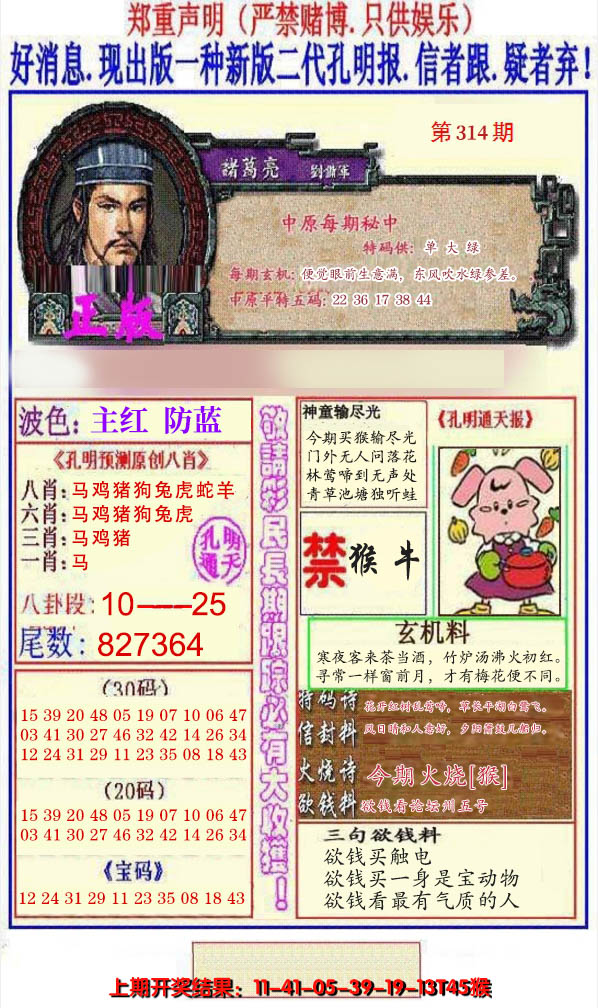 郑重声明（严禁赌博.只供娱乐）
好消息.现出版一种新版二代孔明报.信者跟.疑者弃！
第314期
諸葛亮
劉備軍
中原每期秘中
特码供：单 大 绿
每期玄机：便觉眼前生意满，东风吹水绿参差。
中原平特五码：22 36 17 38 44
正版
波色：主红 防蓝
《孔明预测原创八肖》
八肖：马鸡猪狗兔虎蛇羊
六肖：马鸡猪狗兔虎
三肖：马鸡猪
一肖：马
孔明通天
八卦段：10——25
尾数：827364
（30码）
15 39 20 48 05 19 07 10 06 47
03 41 30 27 46 32 42 14 26 34
12 24 31 29 11 23 35 08 18 43
（20码）
15 39 20 48 05 19 07 10 06 47
03 41 30 27 46 32 42 14 26 34
《宝码》
12 24 31 29 11 23 35 08 18 43
敬請彩民長期跟踪必有大收獲！
神童输尽光
今期买猴输尽光
门外无人问落花
林莺啼到无声处
青草池塘独听蛙
《孔明通天报》
禁 猴 牛
玄机料
寒夜客来茶当酒，竹炉汤沸火初红。
寻常一样窗前月，才有梅花便不同。
特码诗
花开红树乱莺啼，草长平湖白鹭飞。
信封料
风日晴和人意好，夕阳箫鼓几船归。
火烧诗
今期火烧[猴]
欲钱料
欲钱看论坛州五号
三句欲钱料
欲钱买触电
欲钱买一身是宝动物
欲钱看最有气质的人
上期开奖结果：11-41-05-39-19-13T45猴